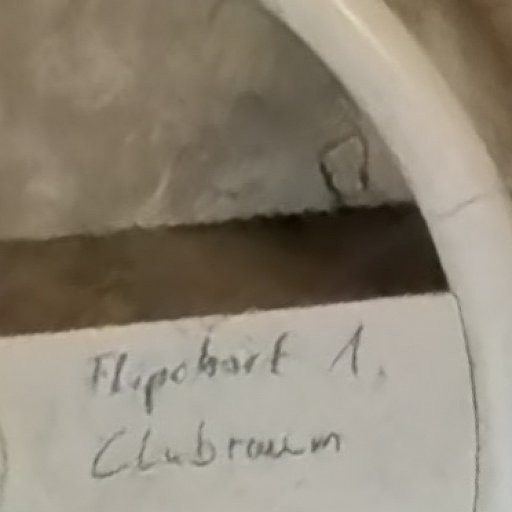 Flipchart 1.
Clubraum